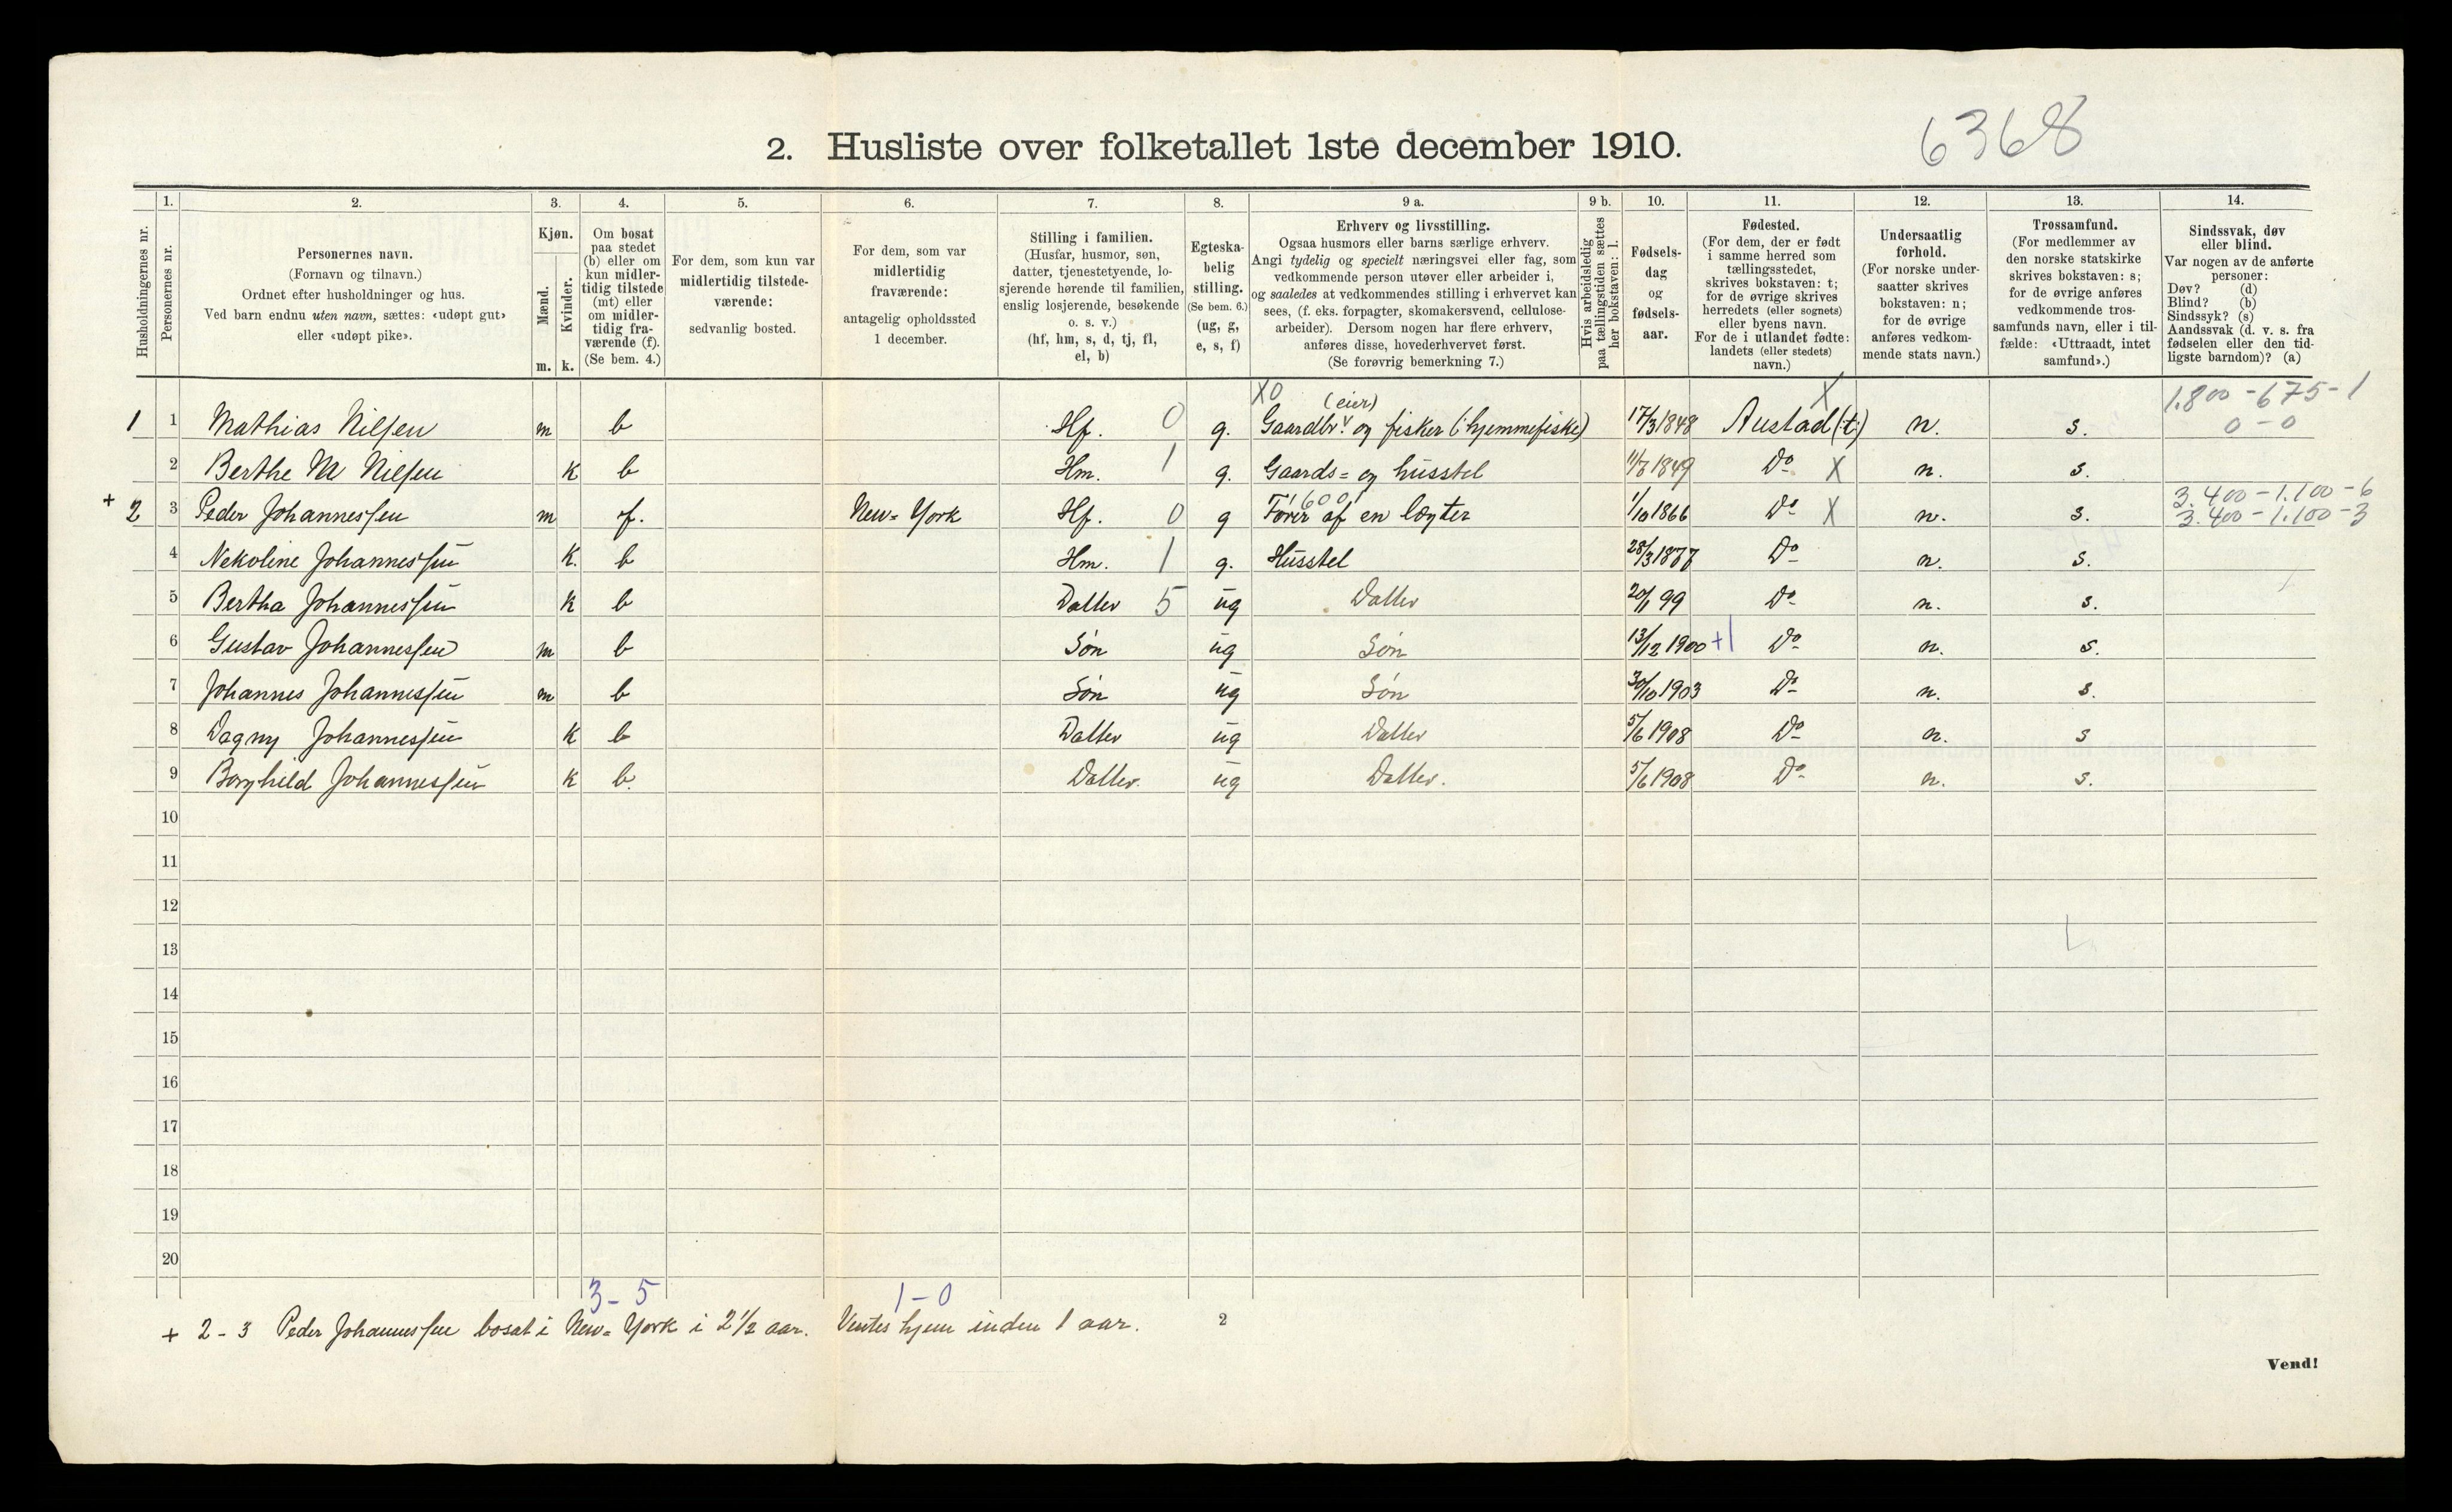 6368
2. Husliste over folketallet 1ste december 1910.
Husholdningernes nr.
1. Personernes nr.
2. Personernes navn. (Fornavn og tilnavn.) Ordnet efter husholdninger og hus. Ved barn endnu uten navn, sættes: «udøpt gut» eller «udøpt pike».
3. Kjøn. Mænd. m. Kvinder. k.
4. Om bosat paa stedet (b) eller om kun midlertidig tilstede (mt) eller om midlertidig fraværende (f). (Se bem. 4.)
5. For dem, som kun var midlertidig tilstedeværende: sedvanlig bosted.
6. For dem, som var midlertidig fraværende: antagelig opholdssted 1 december.
7. Stilling i familien. (Husfar, husmor, søn, datter, tjenestetyende, losjerende hørende til familien, enslig losjerende, besøkende o. s. v.) (hf, hm, s, d, tj, fl, el, b)
8. Egteskabelig stilling. (Se bem. 6.) (ug, g, e, s, f)
9 a. Erhverv og livsstilling. Ogsaa husmors eller barns særlige erhverv. Angi tydelig og specielt næringsvei eller fag, som vedkommende person utøver eller arbeider i, og saaledes at vedkommendes stilling i erhvervet kan sees, (f. eks. forpagter, skomakersvend, cellulosearbeider). Dersom nogen har flere erhverv, anføres disse, hovederhvervet først. (Se forøvrig bemerkning 7.)
9 b. Hvis arbeidsledig paa tællingstiden sættes her bokstaven: l.
10. Fødselsdag og fødselsaar.
11. Fødested. (For dem, der er født i samme herred som tællingsstedet, skrives bokstaven: t; for de øvrige skrives herredets (eller sognets) eller byens navn. For de i utlandet fødte: landets (eller stedets) navn.)
12. Undersaatlig forhold. (For norske undersaatter skrives bokstaven: n; for de øvrige anføres vedkommende stats navn.)
13. Trossamfund. (For medlemmer av den norske statskirke skrives bokstaven: s; for de øvrige anføres vedkommende trossamfunds navn, eller i tilfælde: «Uttraadt, intet samfund».)
14. Sindssvak, døv eller blind. Var nogen av de anførte personer: Døv? (d) Blind? (b) Sindssyk? (s) Aandssvak (d. v. s. fra fødselen eller den tidligste barndom)? (a)
X0 (eier) X 1.800 - 675 - 1
1 1 Mathias Nilsen m b Hf. 0 g. Gaardbr. og fisker (:hjemmefiske) 17/3 1848 Austad (:t:) n. s. 0 - 0
2 Berthe M Nilsen k b Hm. 1 g. Gaards= og husstel 11/8 1849 Do X n. s.
600 3.400 - 1.100 - 6
+ 2 3 Peder Johannessen m f. New=York Hf. 0 g Fører af en lægter 1/10 1866 Do X n. s. 3.400 - 1.100 - 3
4 Nekoline Johannessen K. b Hm. 1 g. Husstel 28/3 1877 Do n. s.
5 Bertha Johannessen k b Datter 5 ug Datter 20/1 99 Do n. s.
6 Gustav Johannessen m b Søn ug Søn 13/12 1900 +1 Do n. s.
7 Johannes Johannessen m b Søn ug Søn 30/10 1903 Do n. s.
8 Dagny Johannessen K b Datter ug Datter 5/6 1908 Do n. s
9 Borghild Johannessen k b. Datter. ug Datter. 5/6 1908 Do n. s.
10
11
12
13
14
15
16
17
18
19
20
3 - 5 1 - 0
+ 2 - 3 Peder Johannessen bosat i New=York i 2 1/2 aar. Ventes hjem inden 1 aar.
2
Vend!